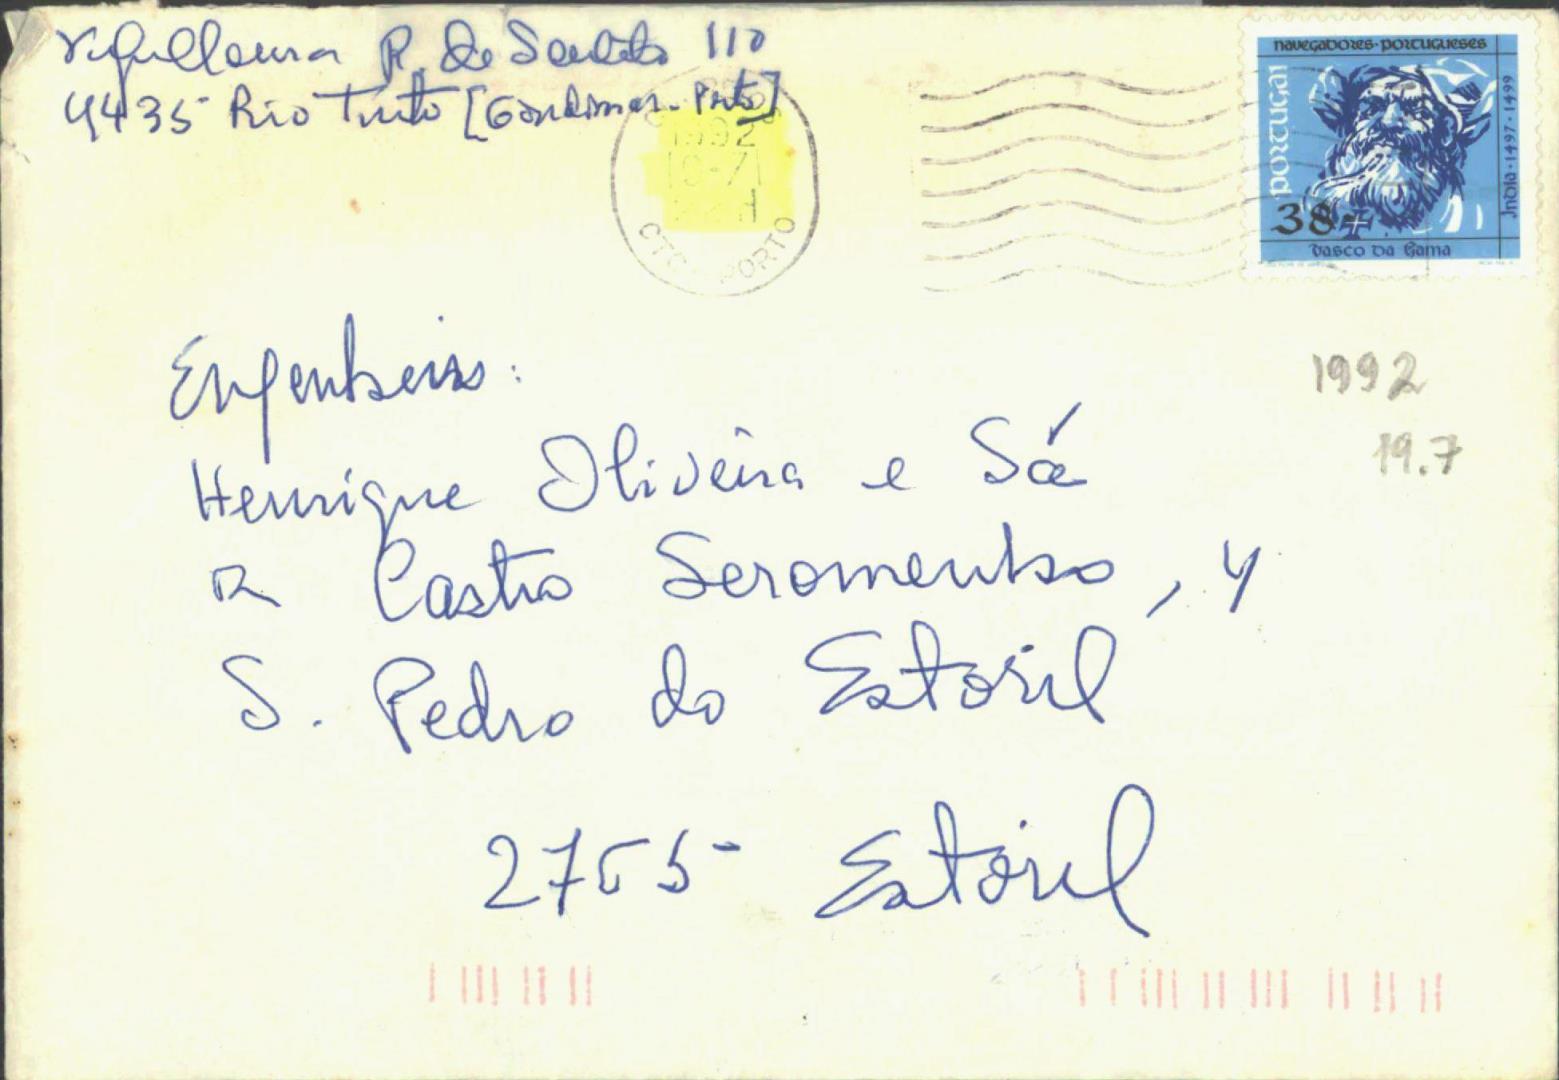 R. de 110
4435 Rio Tinto [Gondomar - Porto]
1992
CTC PORTO
navegadores · portugueses
portugal
Índia · 1497 · 1499
38
Vasco da Gama
1992
19.7
Engenheiro:
Henrique Oliveira e Sá
R Castro Soromenho, 4
S. Pedro do Estoril
2765 - Estoril